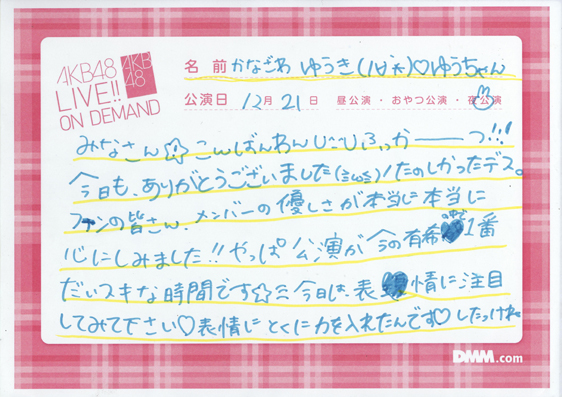 AKB48
LIVE!!
ON DEMAND
AKB
48
名前 かなざわ ゆうき(ハ・ω・ホ)♡ゆうちゃん
公演日 12月21日 昼公演・おやつ公演・夜公演
みなさん☆こんばんわんU・ω・Uふっかーーっ!!!
今日も、ありがとうございました(≧ω≦)!たのしかったデス。
ファンの皆さん、メンバーの優しさが本当に本当に
心にしみました!!やっぱ公演が今の有希の中で1番
だいスキな時間です☆ミ今日は、表情に注目
してみて下さい♡表情にとくに力を入れたんです♡したっけね
DMM.com